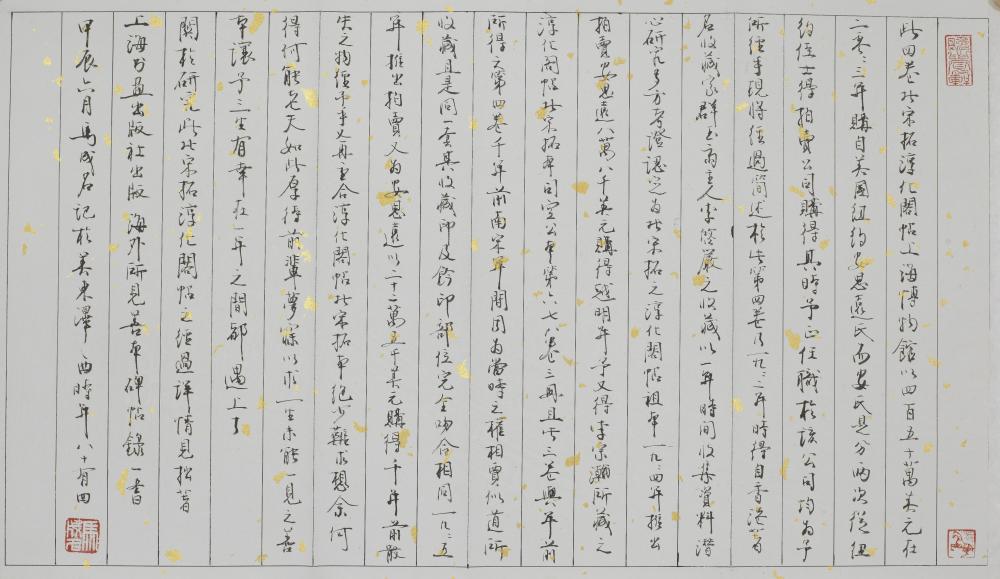 此四卷北宋拓淳化閣帖上海博物館以四百五十萬美元在
二零零三年購自美國紐約安思遠氏而安氏是分兩次從紐
約佳士得拍賣公司購得其時予正任職於該公司均為予
所經手現將經過簡述於告第四卷乃一九九二年時得自香港著
名收藏家群玉齋主人李啓嚴之收藏以一年時間收集資料潛
心研究多方考證認定為北宋拓之淳化閣帖祖本一九九四年推出
拍賣安思遠八萬八千美元購得越明年予又得李宗瀚所藏之
淳化閣帖北宋拓本司空公本第六七八卷三冊且此三卷與年前
所得之第四卷千年前南宋年間因為當時之權相賈似道所
收藏且是同一套其收藏印及鈐印部位完全吻合相同一九九五
年推出拍賣又為安思遠以二十二萬五千美元購得千年前散
失之物經予手又再重合淳化閣帖北宋拓本絕少難求想余何
得何能老天如此厚待前輩夢寐以求一生未能一見之善
本讓予三生有幸在一年之間都遇上了
關於研究此北宋拓淳化閣帖之經過詳情見拙著
上海書畫出版社出版 海外所見善本碑帖錄一書
甲辰六月馬成名記於美東澤西時年八十有四
馬成名